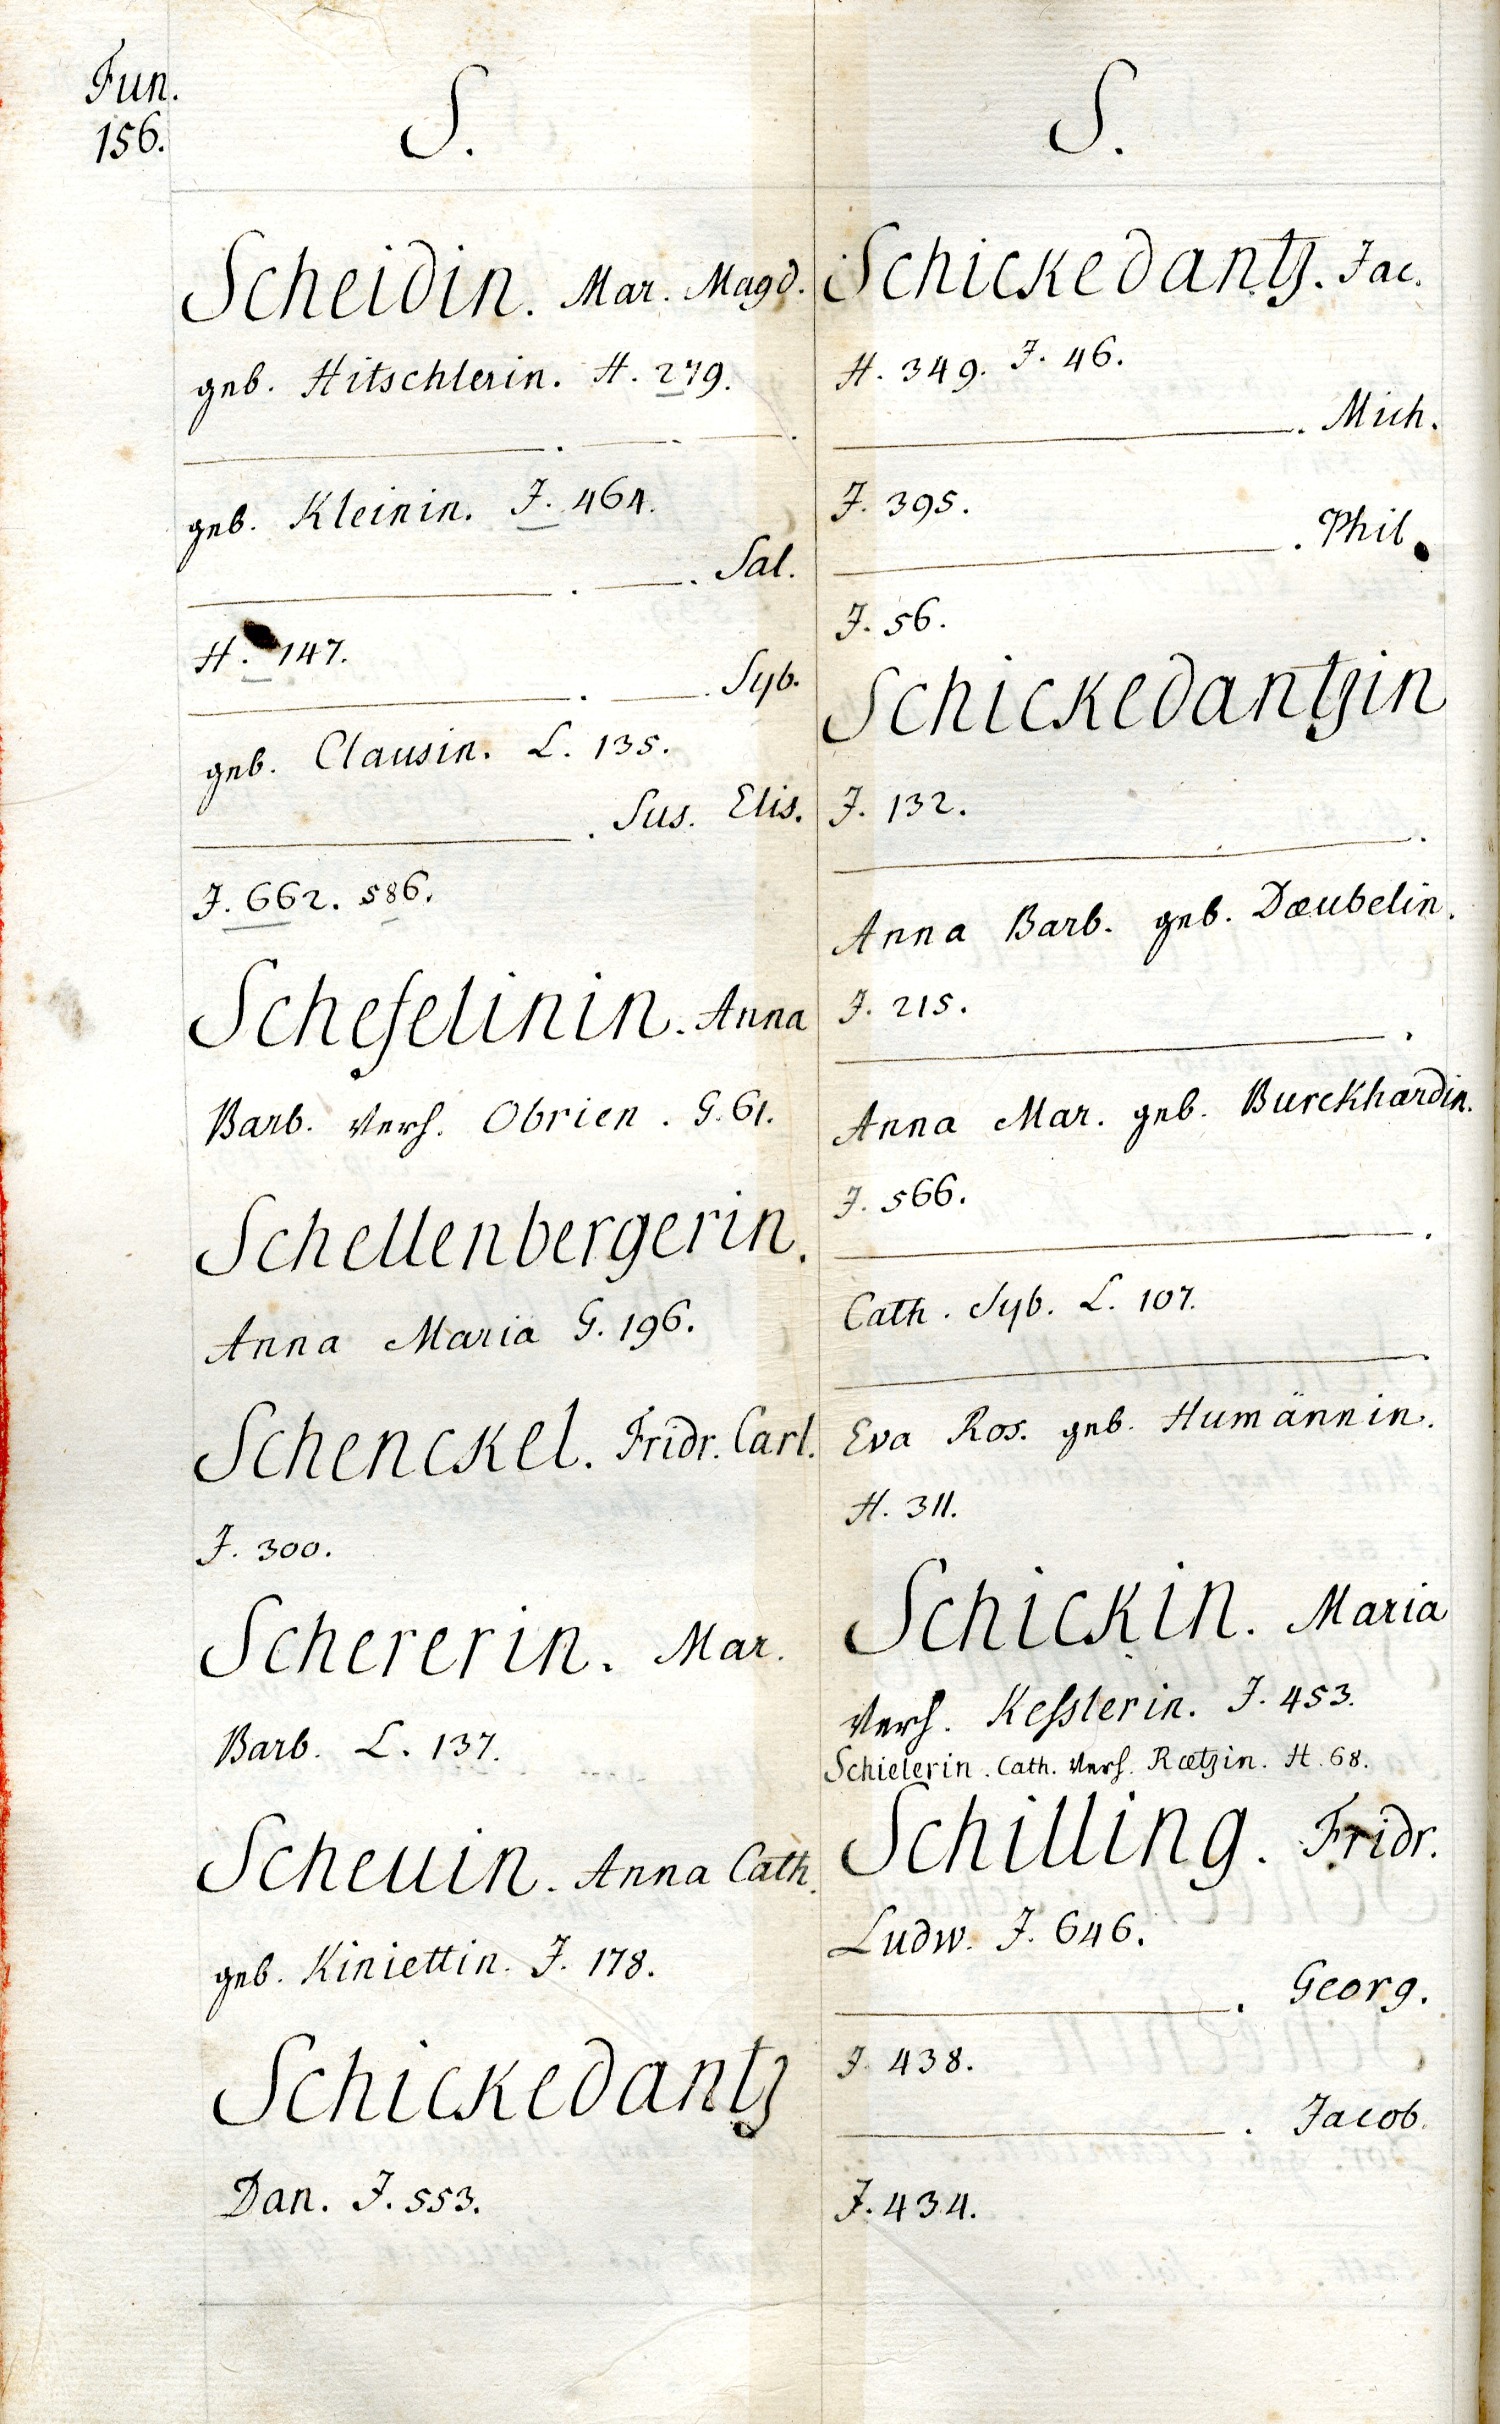 Fun.
156.
S.
Scheidin. Mar. Magd.
geb. Hitschlerin. H. 279.
geb. Kleinin. J. 464.
Sal.
H. 147.
Syb.
geb. Clausin. L. 135.
Sus. Elis.
J. 662. 586.
Schefelinin. Anna
Barb. verh. Obrien. G. 61.
Schellenbergerin.
Anna Maria G. 196.
Schenckel. Fridr. Carl.
J. 300.
Schererin. Mar.
Barb. L. 137.
Scheuin. Anna Cath.
geb. Kiniettin. J. 178.
Schickedantz
Dan. J. 553.
S.
Schickedantz. Jac.
H. 349. J. 46.
Mich.
J. 395.
Phil.
J. 56.
Schickedantzin
J. 132.
Anna Barb. geb. Dæubelin.
J. 215.
Anna Mar. geb. Burckhardin.
J. 566.
Cath. Syb. L. 107.
Eva Ros. geb. Humännin.
H. 311.
Schickin. Maria
verh. Kesslerin. J. 453.
Schielerin. Cath. verh. Rætzin. H. 68.
Schilling. Fridr.
Ludw. J. 646.
Georg.
J. 438.
Jacob.
J. 434.